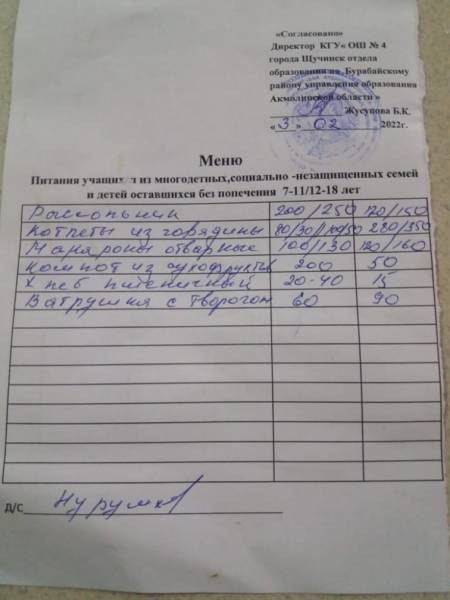 «Согласовано»
Директор КГУ« ОШ № 4
города Щучинск отдела
образования по Бурабайскому
району управления образования
Акмолинской области »
Жусупова Б.К.
« 3 » 02 2022г.
Меню
Питания учащихся из многодетных,социально -незащищенных семей
и детей оставшихся без попечения 7-11/12-18 лет
Рассольник 200/250 120/150
Котлеты из говядины 80/30//100/50 280/350
Макароны отварные 100/130 120/160
Компот из сухофруктов 200 50
Хлеб пшеничный 20-40 15
Ватрушка с творогом 60 90
Д/С